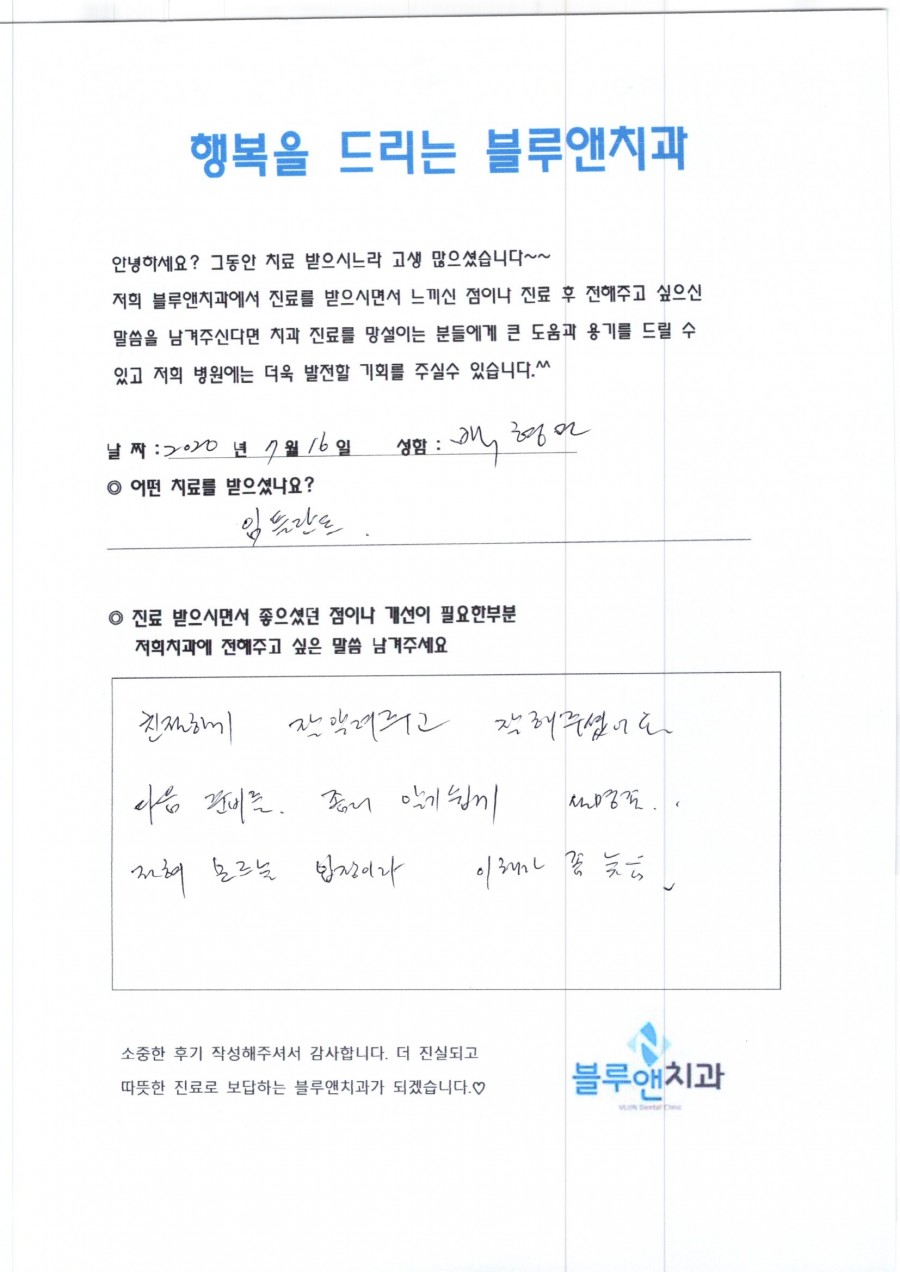 행복을 드리는 블루앤치과
안녕하세요? 그동안 치료 받으시느라 고생 많으셨습니다~~
저희 블루앤치과에서 진료를 받으시면서 느끼신 점이나 진료 후 전해주고 싶으신
말씀을 남겨주신다면 치과 진료를 망설이는 분들에게 큰 도움과 용기를 드릴 수
있고 저희 병원에는 더욱 발전할 기회를 주실수 있습니다.^^
날 짜 : 2020 년 7 월 16 일 성함 :
◎ 어떤 치료를 받으셨나요?
임플란트.
◎ 진료 받으시면서 좋으셨던 점이나 개선이 필요한부분
저희치과에 전해주고 싶은 말씀 남겨주세요
친절하게 잘 해주셨어요
다음 좀더 알기쉽게
전혀 모르는 입장이라 이해가 좀 늦음
소중한 후기 작성해주셔서 감사합니다. 더 진실되고
따뜻한 진료로 보답하는 블루앤치과가 되겠습니다.♡
블루앤치과